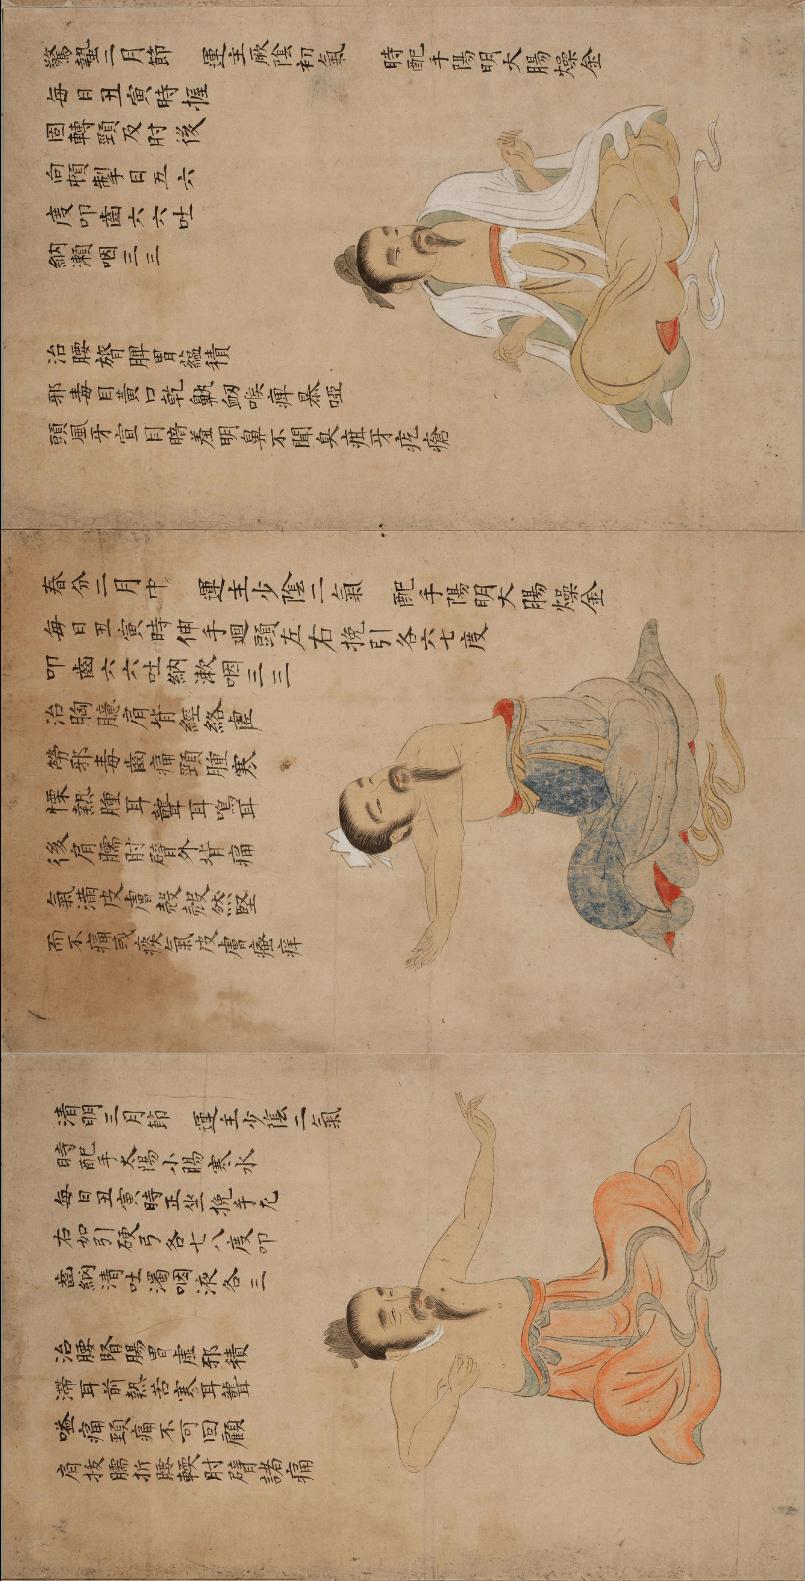 驚蟄二月節 運主厥陰初氣 時配手陽明大腸燥金
每日丑寅時握
固轉頸及肘後
向頓掣日五六
度叩齒六六吐
納漱咽三三
治腰膂脾胃蘊積
邪毒目黃口乾鼽衄喉痺暴啞
頭風牙宣目暗羞明鼻不聞臭疳牙疙瘡
春分二月中 運主少陰二氣 配手陽明大腸燥金
每日丑寅時伸手迴頭左右挽引各六七度
叩齒六六吐納漱咽三三
治胸臆肩背經絡虛
勞邪毒齒痛頸腫寒
慄熱腫耳聾耳鳴耳
後肩臑肘臂外背痛
氣滿皮膚殼殼然堅
而不痛或瘓氣皮膚瘙痒
清明三月節 運主少陰二氣
時配手太陽小腸寒水
每日丑寅時正坐挽手左
右如引硬弓各七八度叩
齒納清吐濁咽液各三
治腰腎腸胃虛邪積
滯耳前熱苦寒耳聾
嗌痛頸痛不可回顧
肩拔臑折腰軟肘臂諸痛